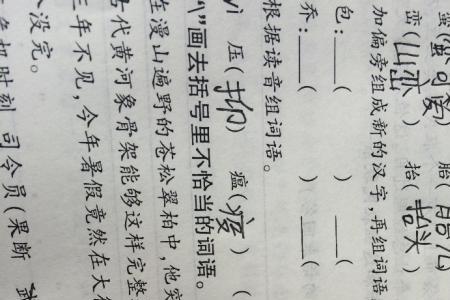 蛮(蛮可爱) 胎(胎儿
峦(山峦) 抬(抬头)
加偏旁组成新的汉字,再组词语
包:____( ) ____(
乔:____( ) ____(
根据读音组词语。
yì 压(抑) 瘟(疫) (
"\"画去括号里不恰当的词语。
在漫山遍野的苍松翠柏中,他突
代黄河象骨架能够这样完整
三年不见,今年暑假竟然在大
没完。
机时刻,司令员(果断